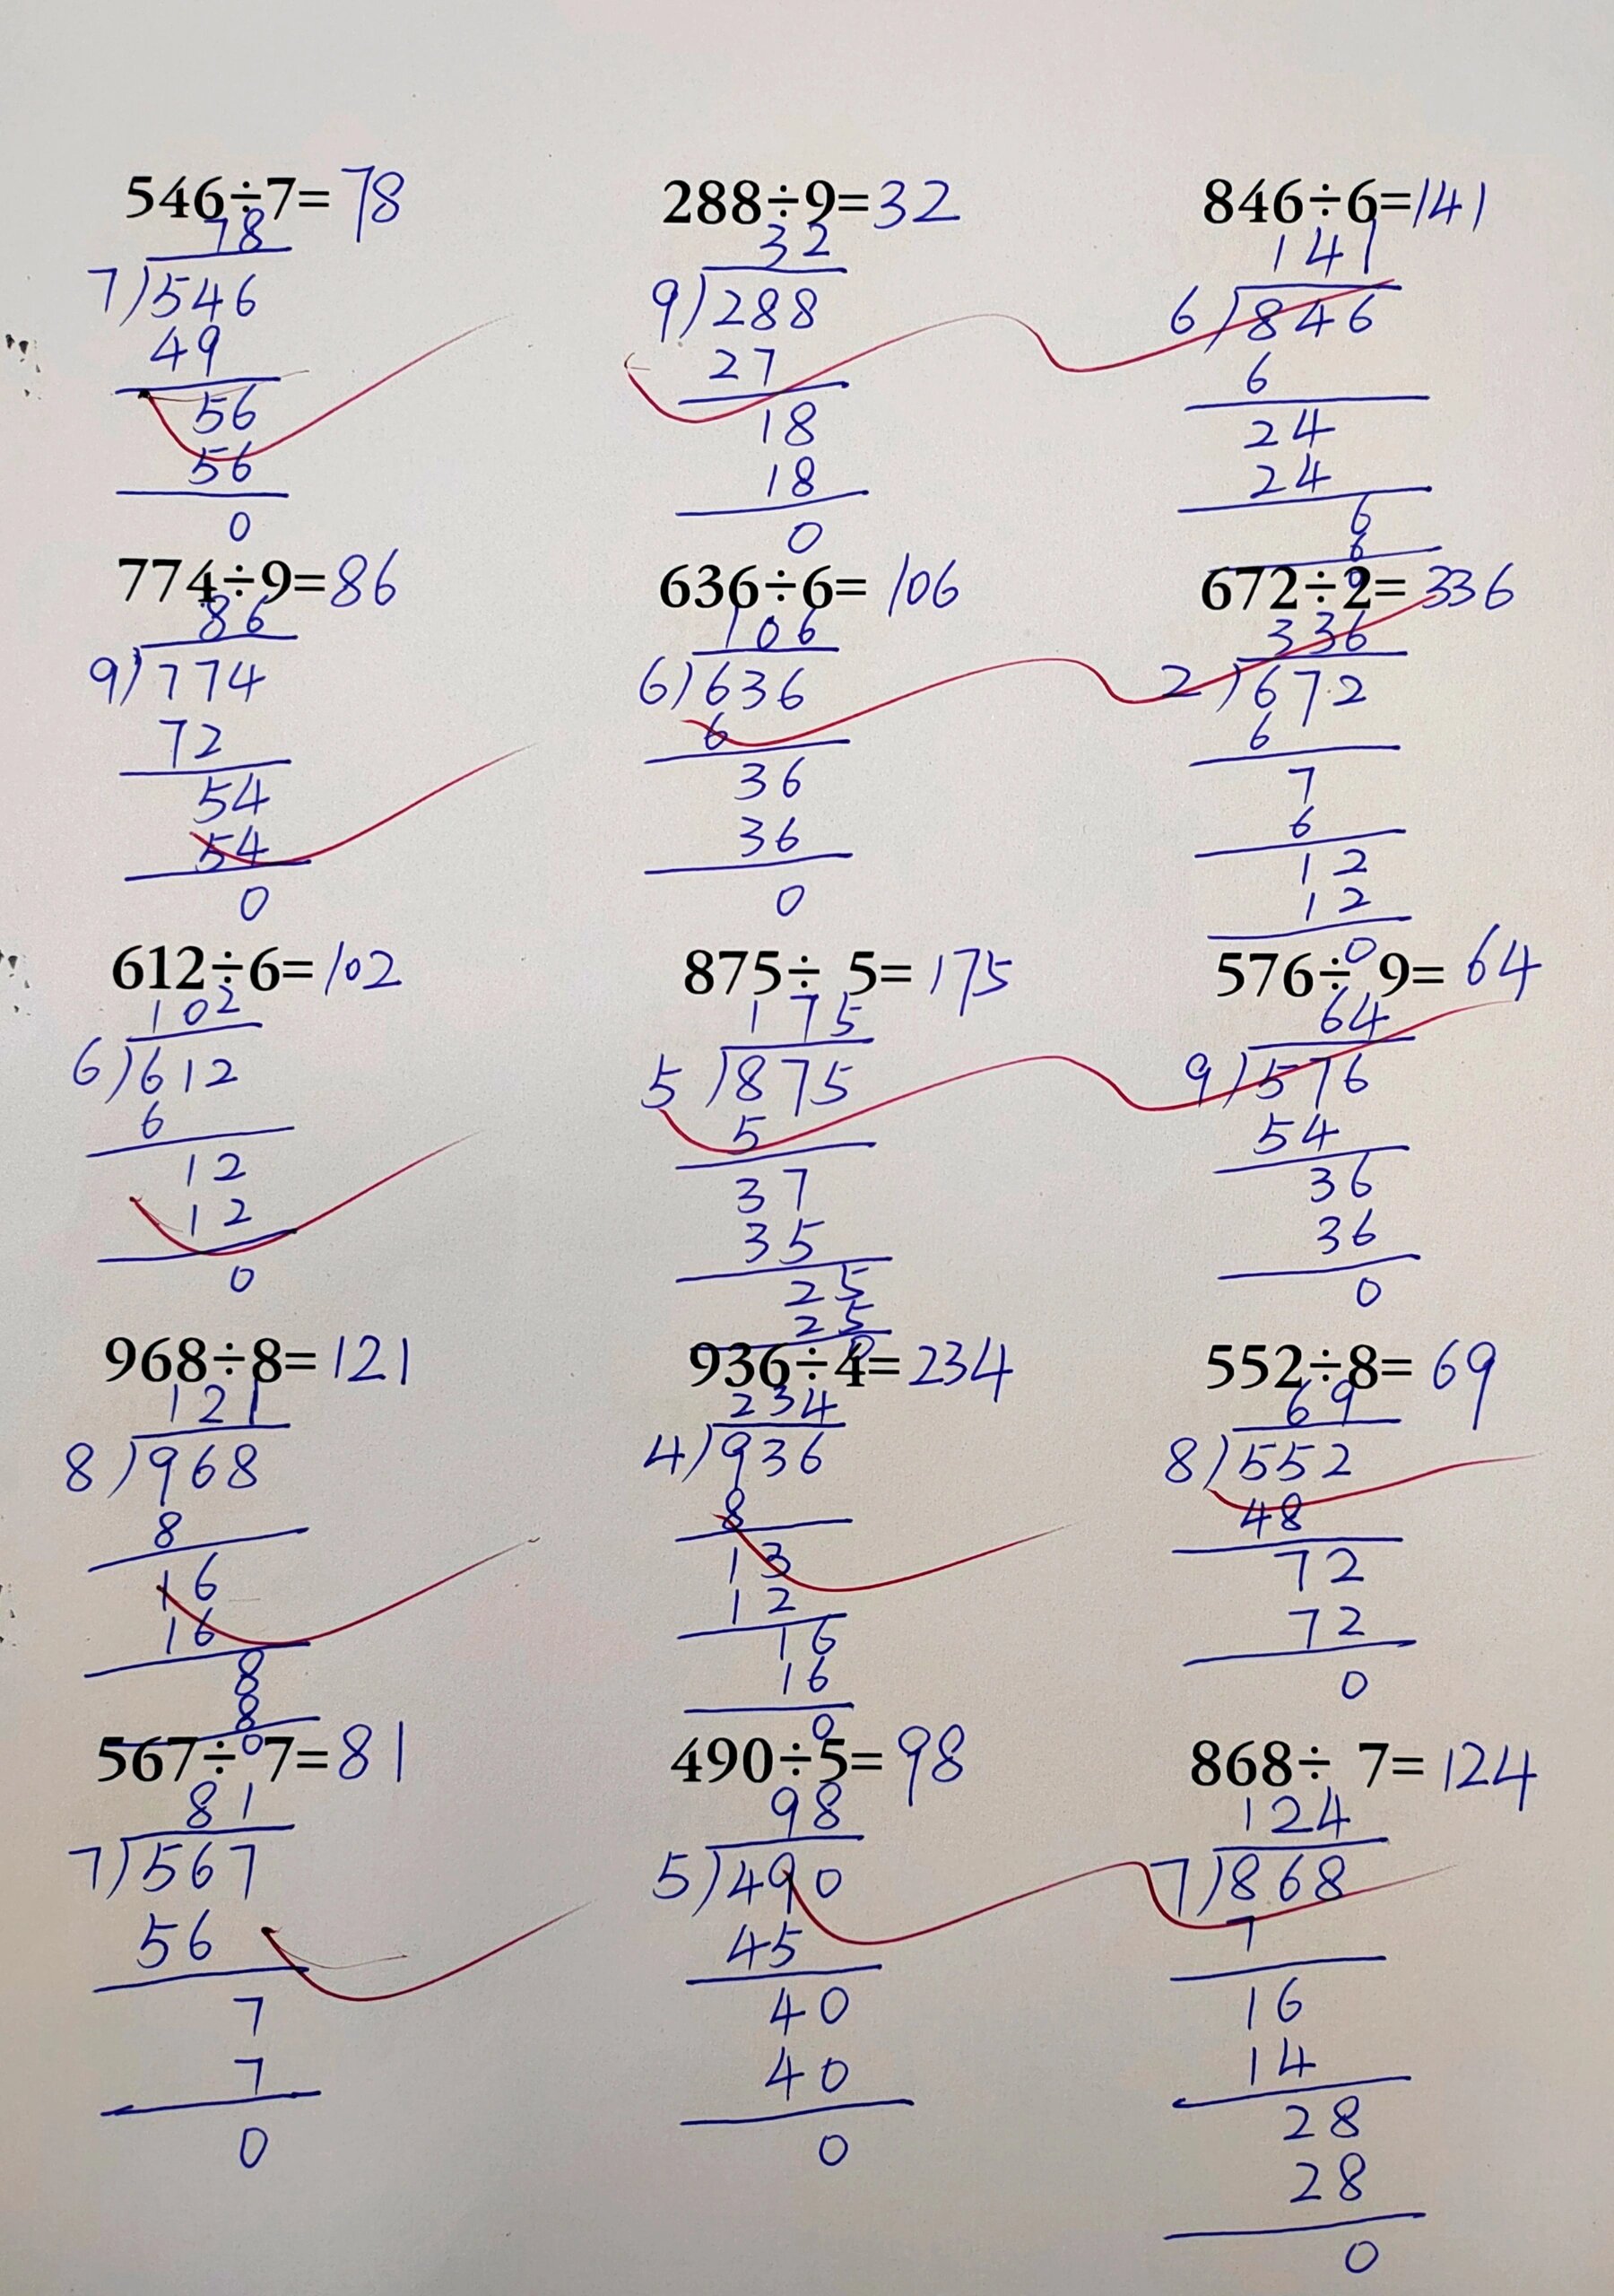 546÷7=78
78
7)546
49
56
56
0
288÷9=32
32
9)288
27
18
18
0
846÷6=141
141
6)846
6
24
24
6
6
0
774÷9=86
86
9)774
72
54
54
0
636÷6=106
106
6)636
6
36
36
0
672÷2=336
336
2)672
6
7
6
12
12
0
612÷6=102
102
6)612
6
12
12
0
875÷ 5=175
175
5)875
5
37
35
25
25
0
576÷ 9=64
64
9)576
54
36
36
0
968÷8=121
121
8)968
8
16
16
8
8
0
936÷4=234
234
4)936
8
13
12
16
16
0
552÷8=69
69
8)552
48
72
72
0
567÷ 7=81
81
7)567
56
7
7
0
490÷5=98
98
5)490
45
40
40
0
868÷ 7=124
124
7)868
7
16
14
28
28
0